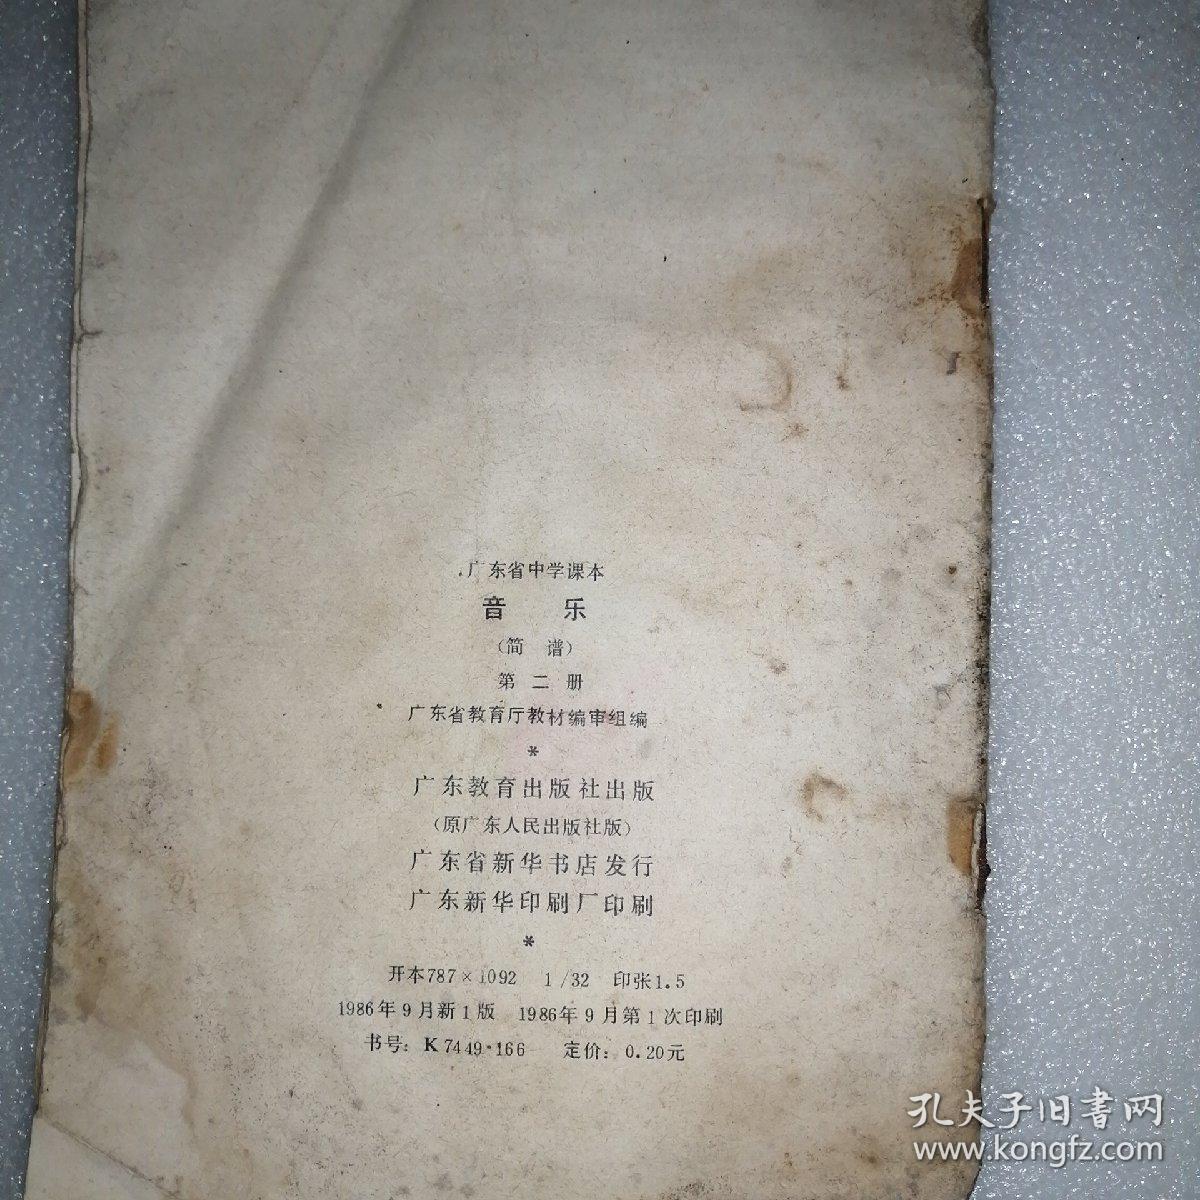 广东省中学课本
音 乐
（简 谱）
第 二 册
广东省教育厅教材编审组编
*
广东教育出版社出版
（原广东人民出版社版）
广东省新华书店发行
广东新华印刷厂印刷
*
开本787×1092 1/32 印张1.5
1986年9月新1版 1986年9月第1次印刷
书号：K7449·166 定价：0.20元
孔夫子旧书网
www.kongfz.com